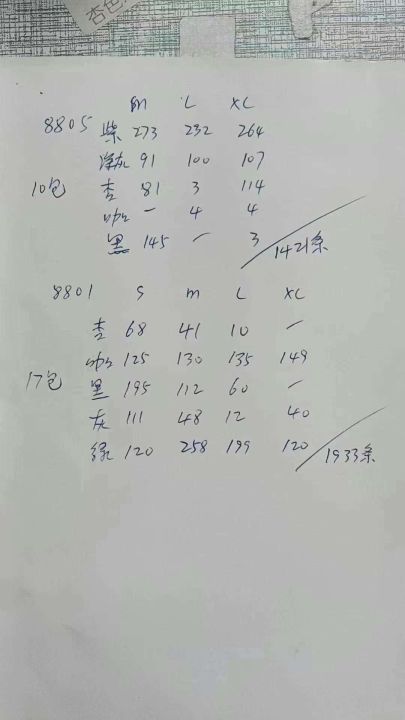 杏色
M L XL
8805 紫 273 232 264
灰 91 100 107
10包 杏 81 3 114
咖 一 4 4
黑 145 一 3 1421条
8801 S M L XL
杏 68 41 10 一
咖 125 130 135 149
17包 黑 195 112 60 一
灰 111 48 12 40
绿 120 258 199 120 1933条